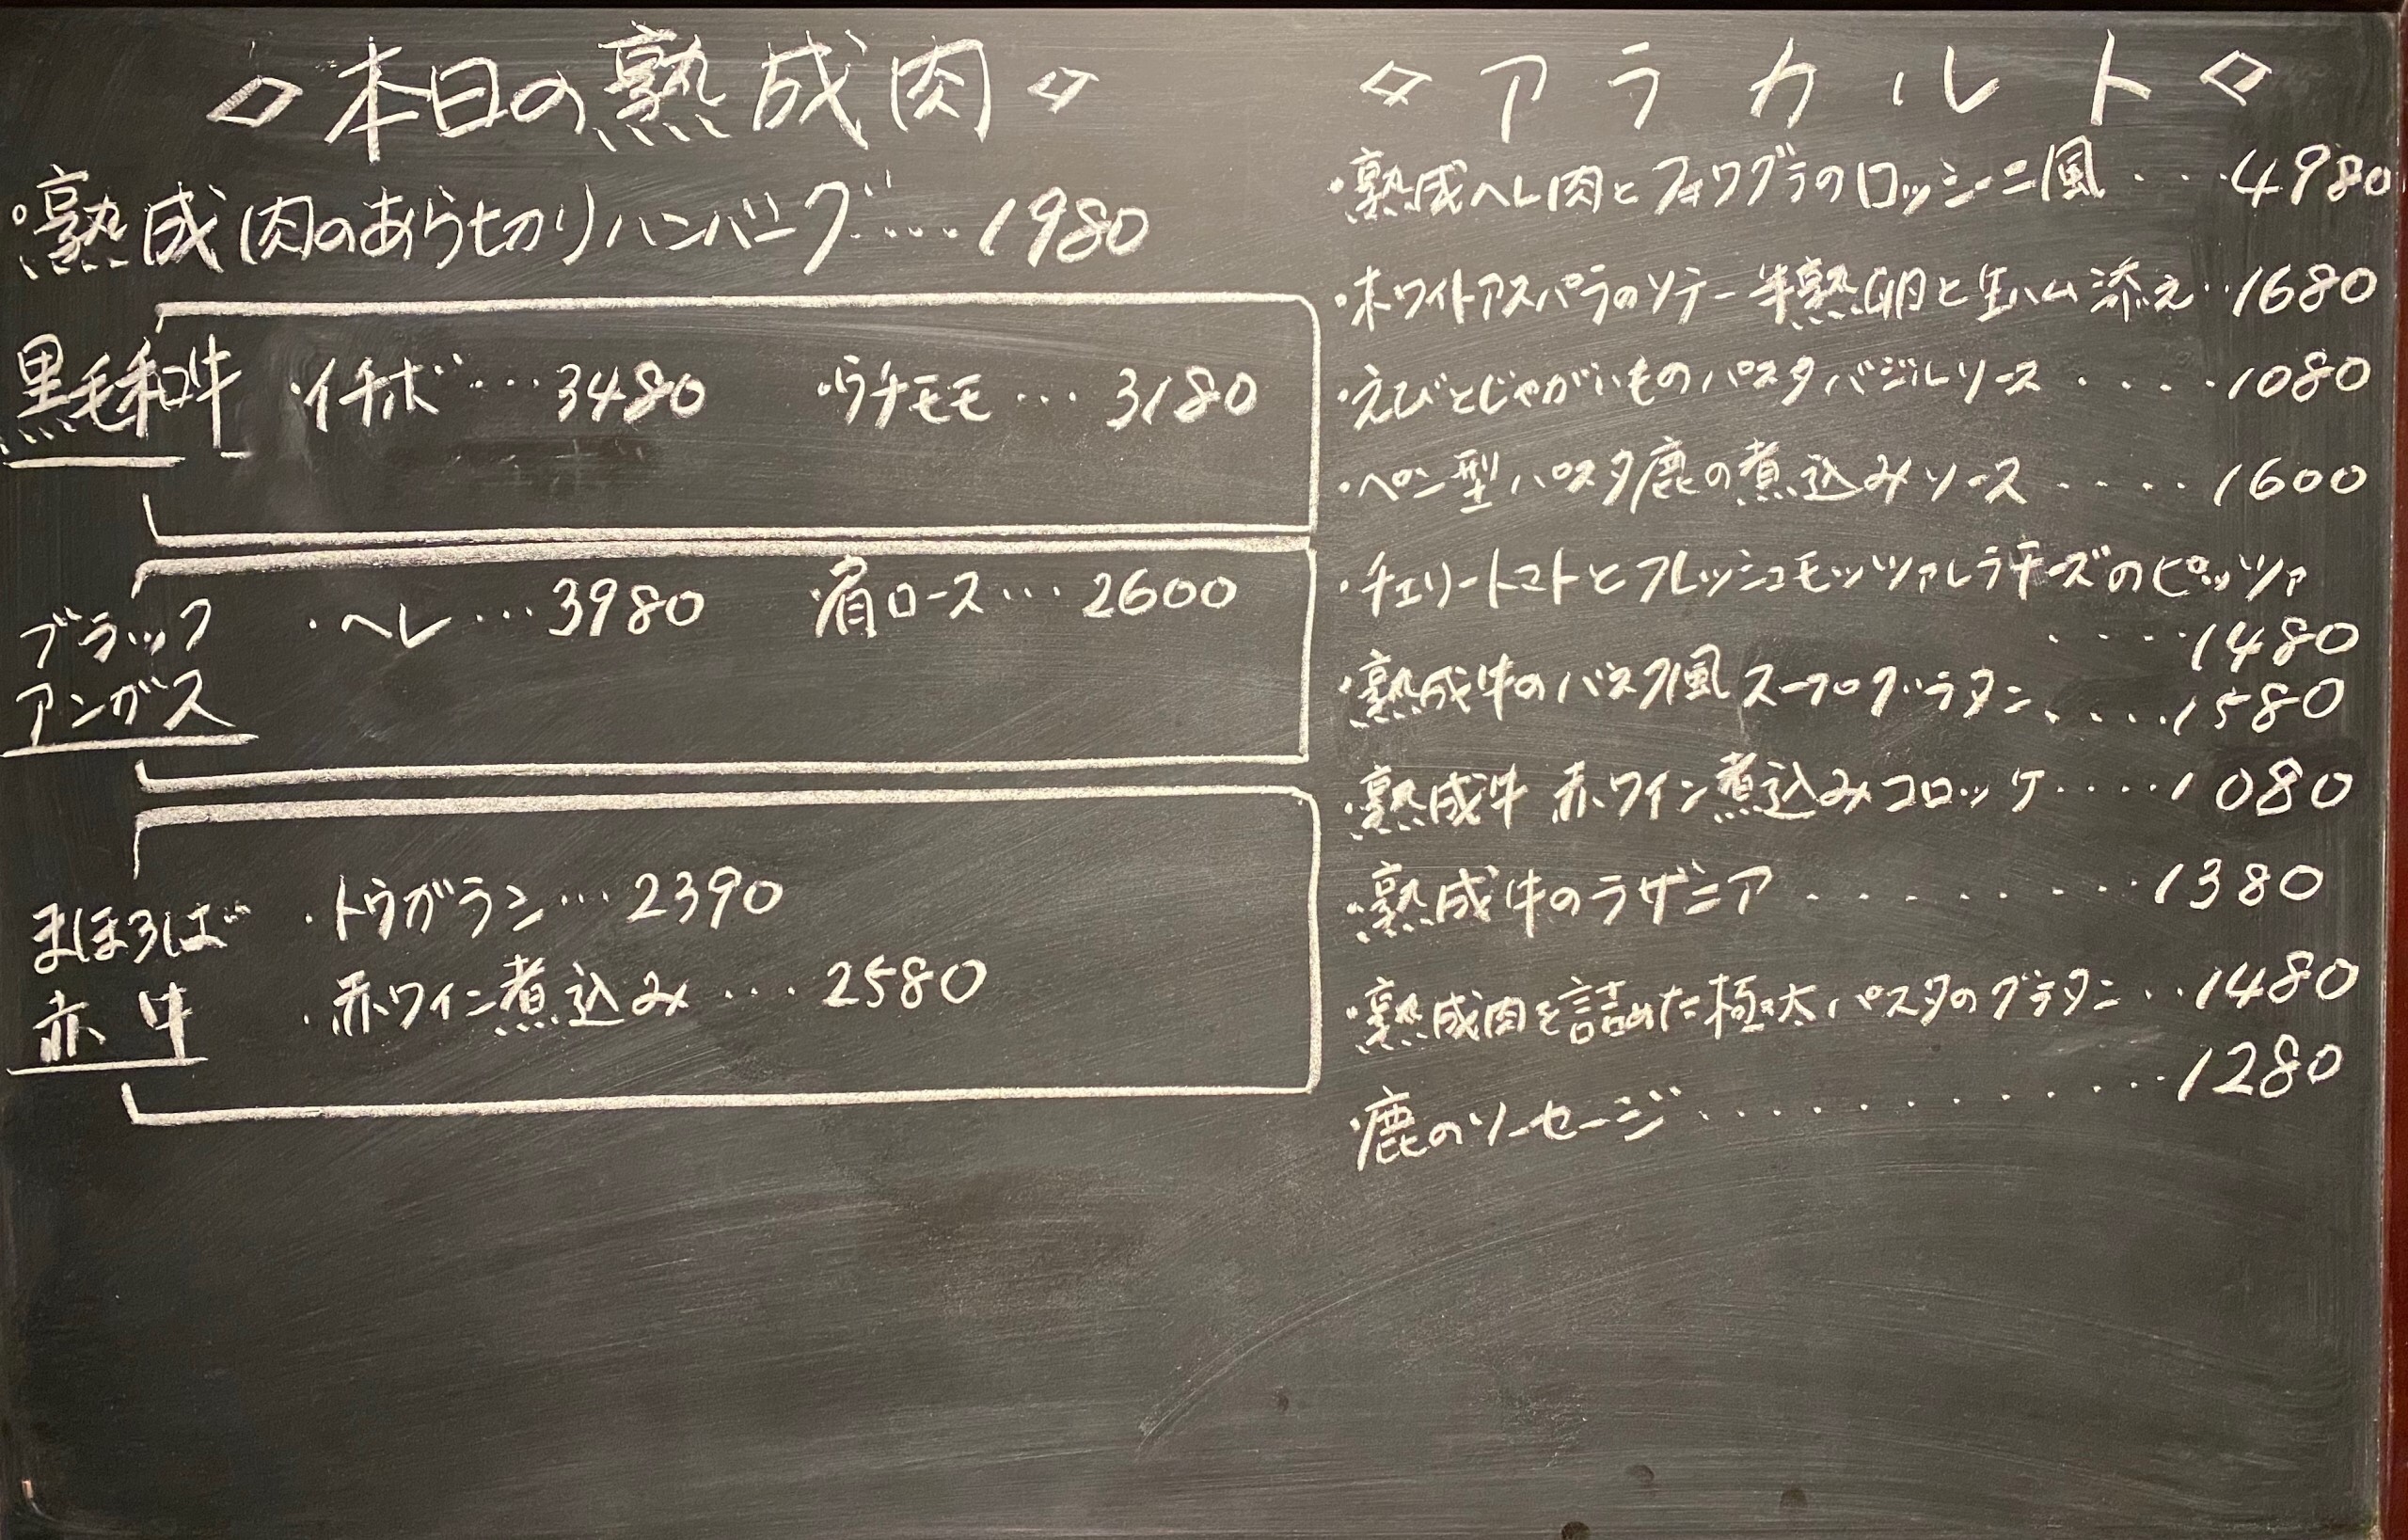 ◇本日の熟成肉◇
・熟成肉のあら切りハンバーグ‥‥1980
黒毛和牛 ・イチボ…3480 ・ウチモモ…3180
ブラック ・ヘレ…3980 ・肩ロース…2600
アンガス
まほろば ・トウガラシ…2390
赤牛 ・赤ワイン煮込み…2580
◇アラカルト◇
・熟成ヘレ肉とフォワグラのロッシーニ風‥‥4980
・ホワイトアスパラのソテー半熟卵と生ハム添え‥1680
・えびとじゃがいものパスタバジルソース‥‥1080
・ペン型パスタ鹿の煮込みソース‥‥1600
・チェリートマトとフレッシュモッツァレラチーズのピッツァ
‥‥1480
・熟成牛のバスク風スープグラタン‥‥1580
・熟成牛 赤ワイン煮込みコロッケ‥‥1080
・熟成牛のラザニア‥‥‥‥1380
・熟成肉を詰めた極太パスタのグラタン‥1480
・鹿のソーセージ‥‥‥‥‥‥1280